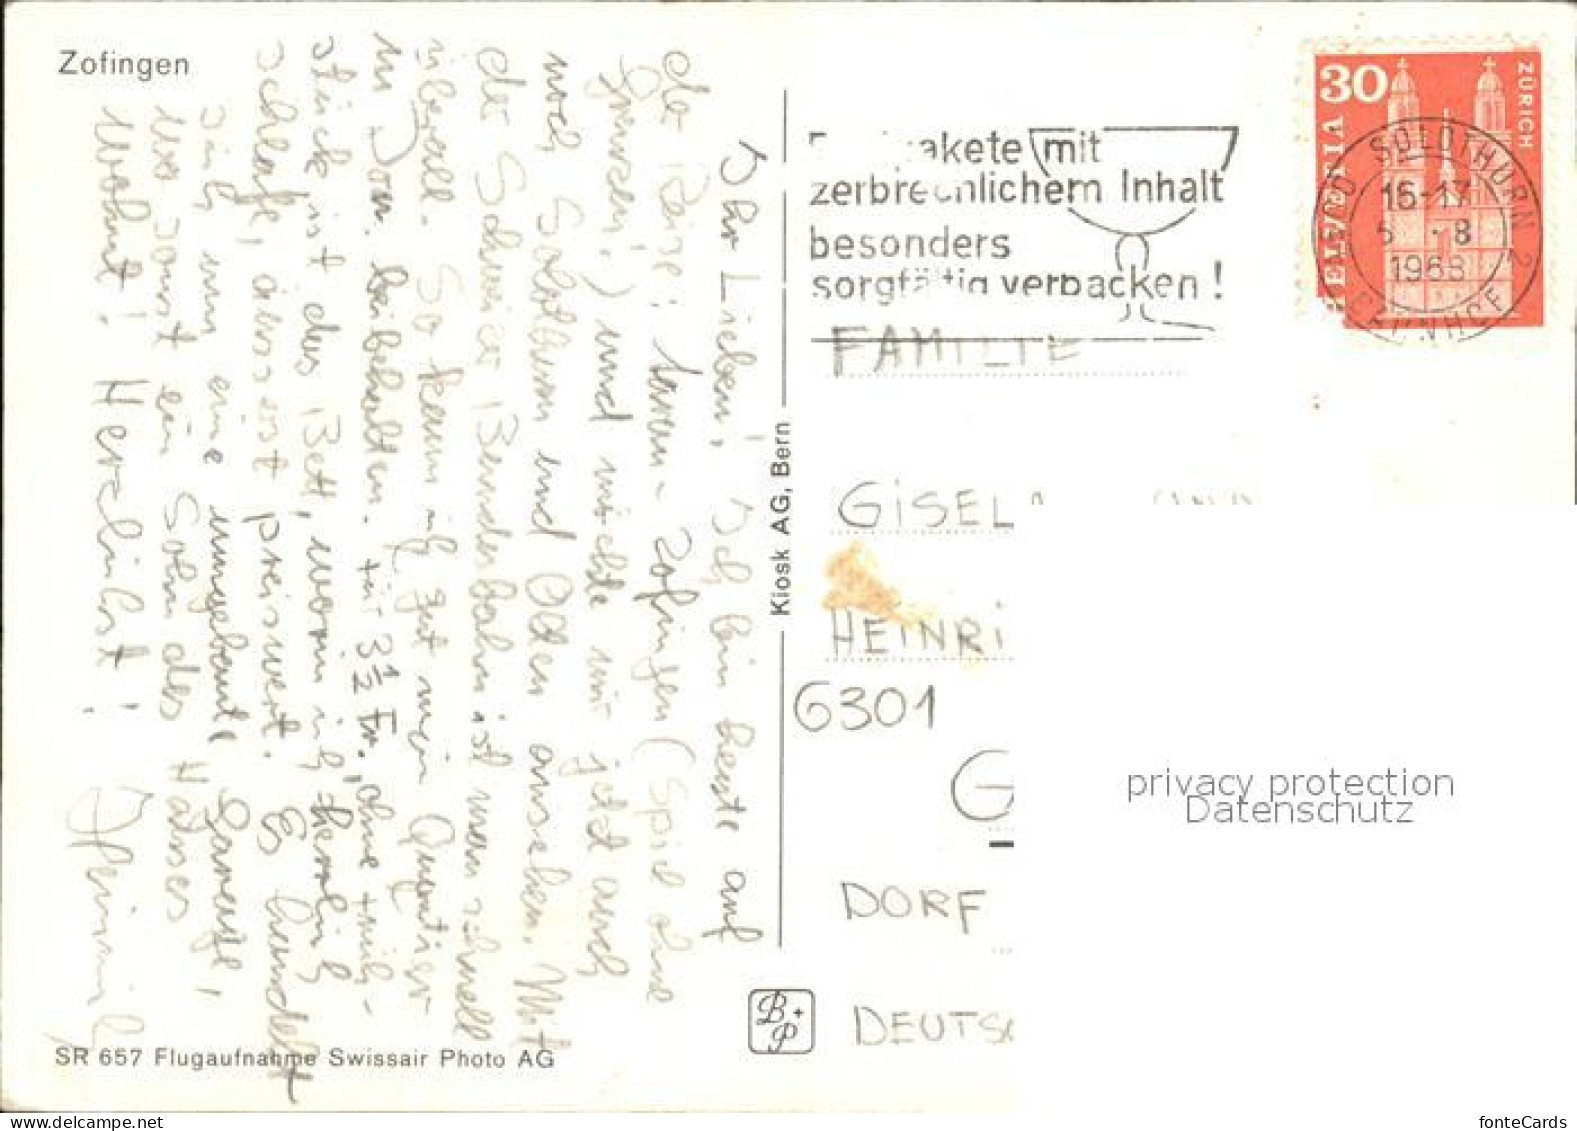 Zofingen
Ihr Lieben! Ich bin heute auf
der Reise: Luzern - Zofingen (Spiel ohne
Grenzen!) und möchte mir jetzt auch
noch Solothurn und Olten ansehen. Mit
der Schweizer Bundesbahn ist man schnell
überall. So kann ich gut mein Quartier
in beibehalten. Für 3 1/2 Fr., ohne Früh-
stück ist das Bett, worin ich herrlich
schlafe, äusserst preiswert. Es handelt
sich um eine umgebaute Garage,
wo sonst ein Sohn des Hauses
wohnt! Herzlichst!
Heinrich
Kiosk AG, Bern
B+P
SR 657 Flugaufnahme Swissair Photo AG
akete mit
zerbrechlichem Inhalt
besonders
sorgfältig verpacken!
30
HELVETIA
ZÜRICH
SOLOTHURN 2
16-17
5 -8
1968
BAHNHOF
FAMILIE
GISEL
HEINRI
6301
G
DORF
DEUTSC
privacy protection
Datenschutz
fonteCards